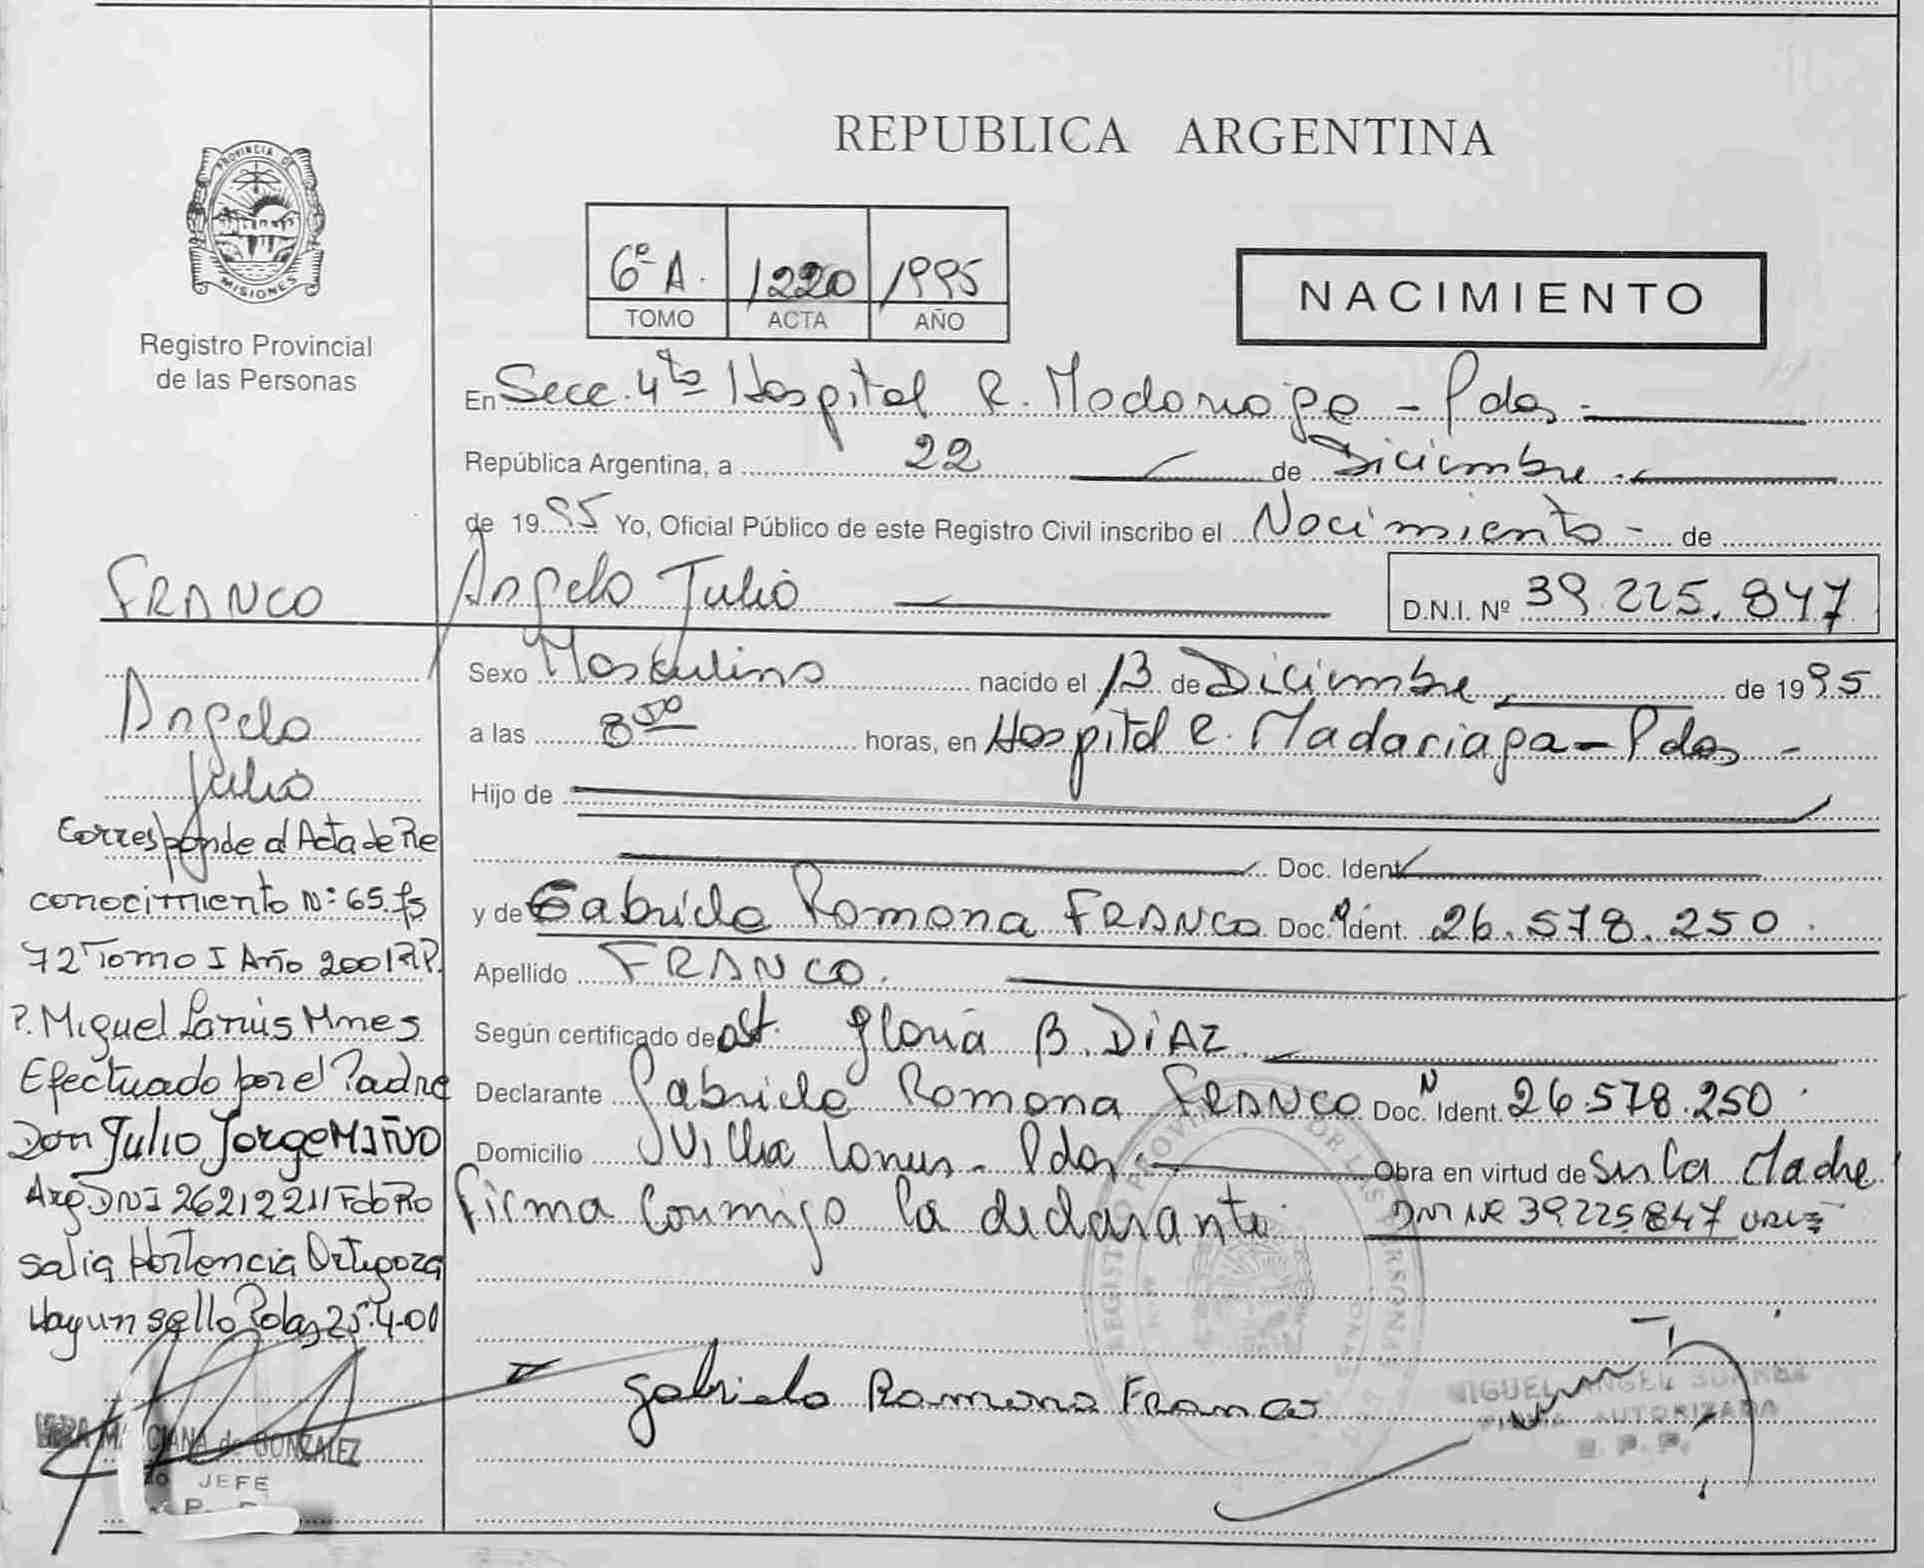 REPUBLICA ARGENTINA
PROVINCIA DE
MISIONES
Registro Provincial
de las Personas
6º A. 1220 1995
TOMO ACTA AÑO
NACIMIENTO
En Secc. 4ta Hospital R. Madariaga - Pdas -
República Argentina, a 22 de Diciembre
de 1995 Yo, Oficial Público de este Registro Civil inscribo el Nacimiento - de
Angelo Julio D.N.I. Nº 39.225.847
Sexo Masculino nacido el 13 de Diciembre de 1995
a las 8 50 horas, en Hospital R. Madariaga - Pdas -
Hijo de
Doc. Ident
y de Gabriela Ramona FRANCO Doc. Ident. 26.578.250.
Apellido FRANCO.
Según certificado de obst. Gloria B. DIAZ
Declarante Gabriela Ramona FRANCO Doc. Ident. N 26.578.250.
Domicilio Villa Lanus - Pdas - Obra en virtud de Ser la Madre
Firma Conmigo la declarante. DNI Nº 39225847 vale
Gabriela Ramona Franco
MIGUEL ANGEL SUAREZ
FIRMA AUTORIZADA
R. P. P.
FRANCO
Angelo
Julio
Corresponde al Acta de Re
conocimiento Nº 65 fs
72 Tomo I Año 2001 RP.
P. Miguel Lanús Mnes
Efectuado por el Padre
Don Julio Jorge MIÑO
Arg DNI 26212211 Fdo Ro
salia Hortencia Ortigoza
Hay un sello Pdas 25-4-01
CIANA de GONZALEZ
JEFE